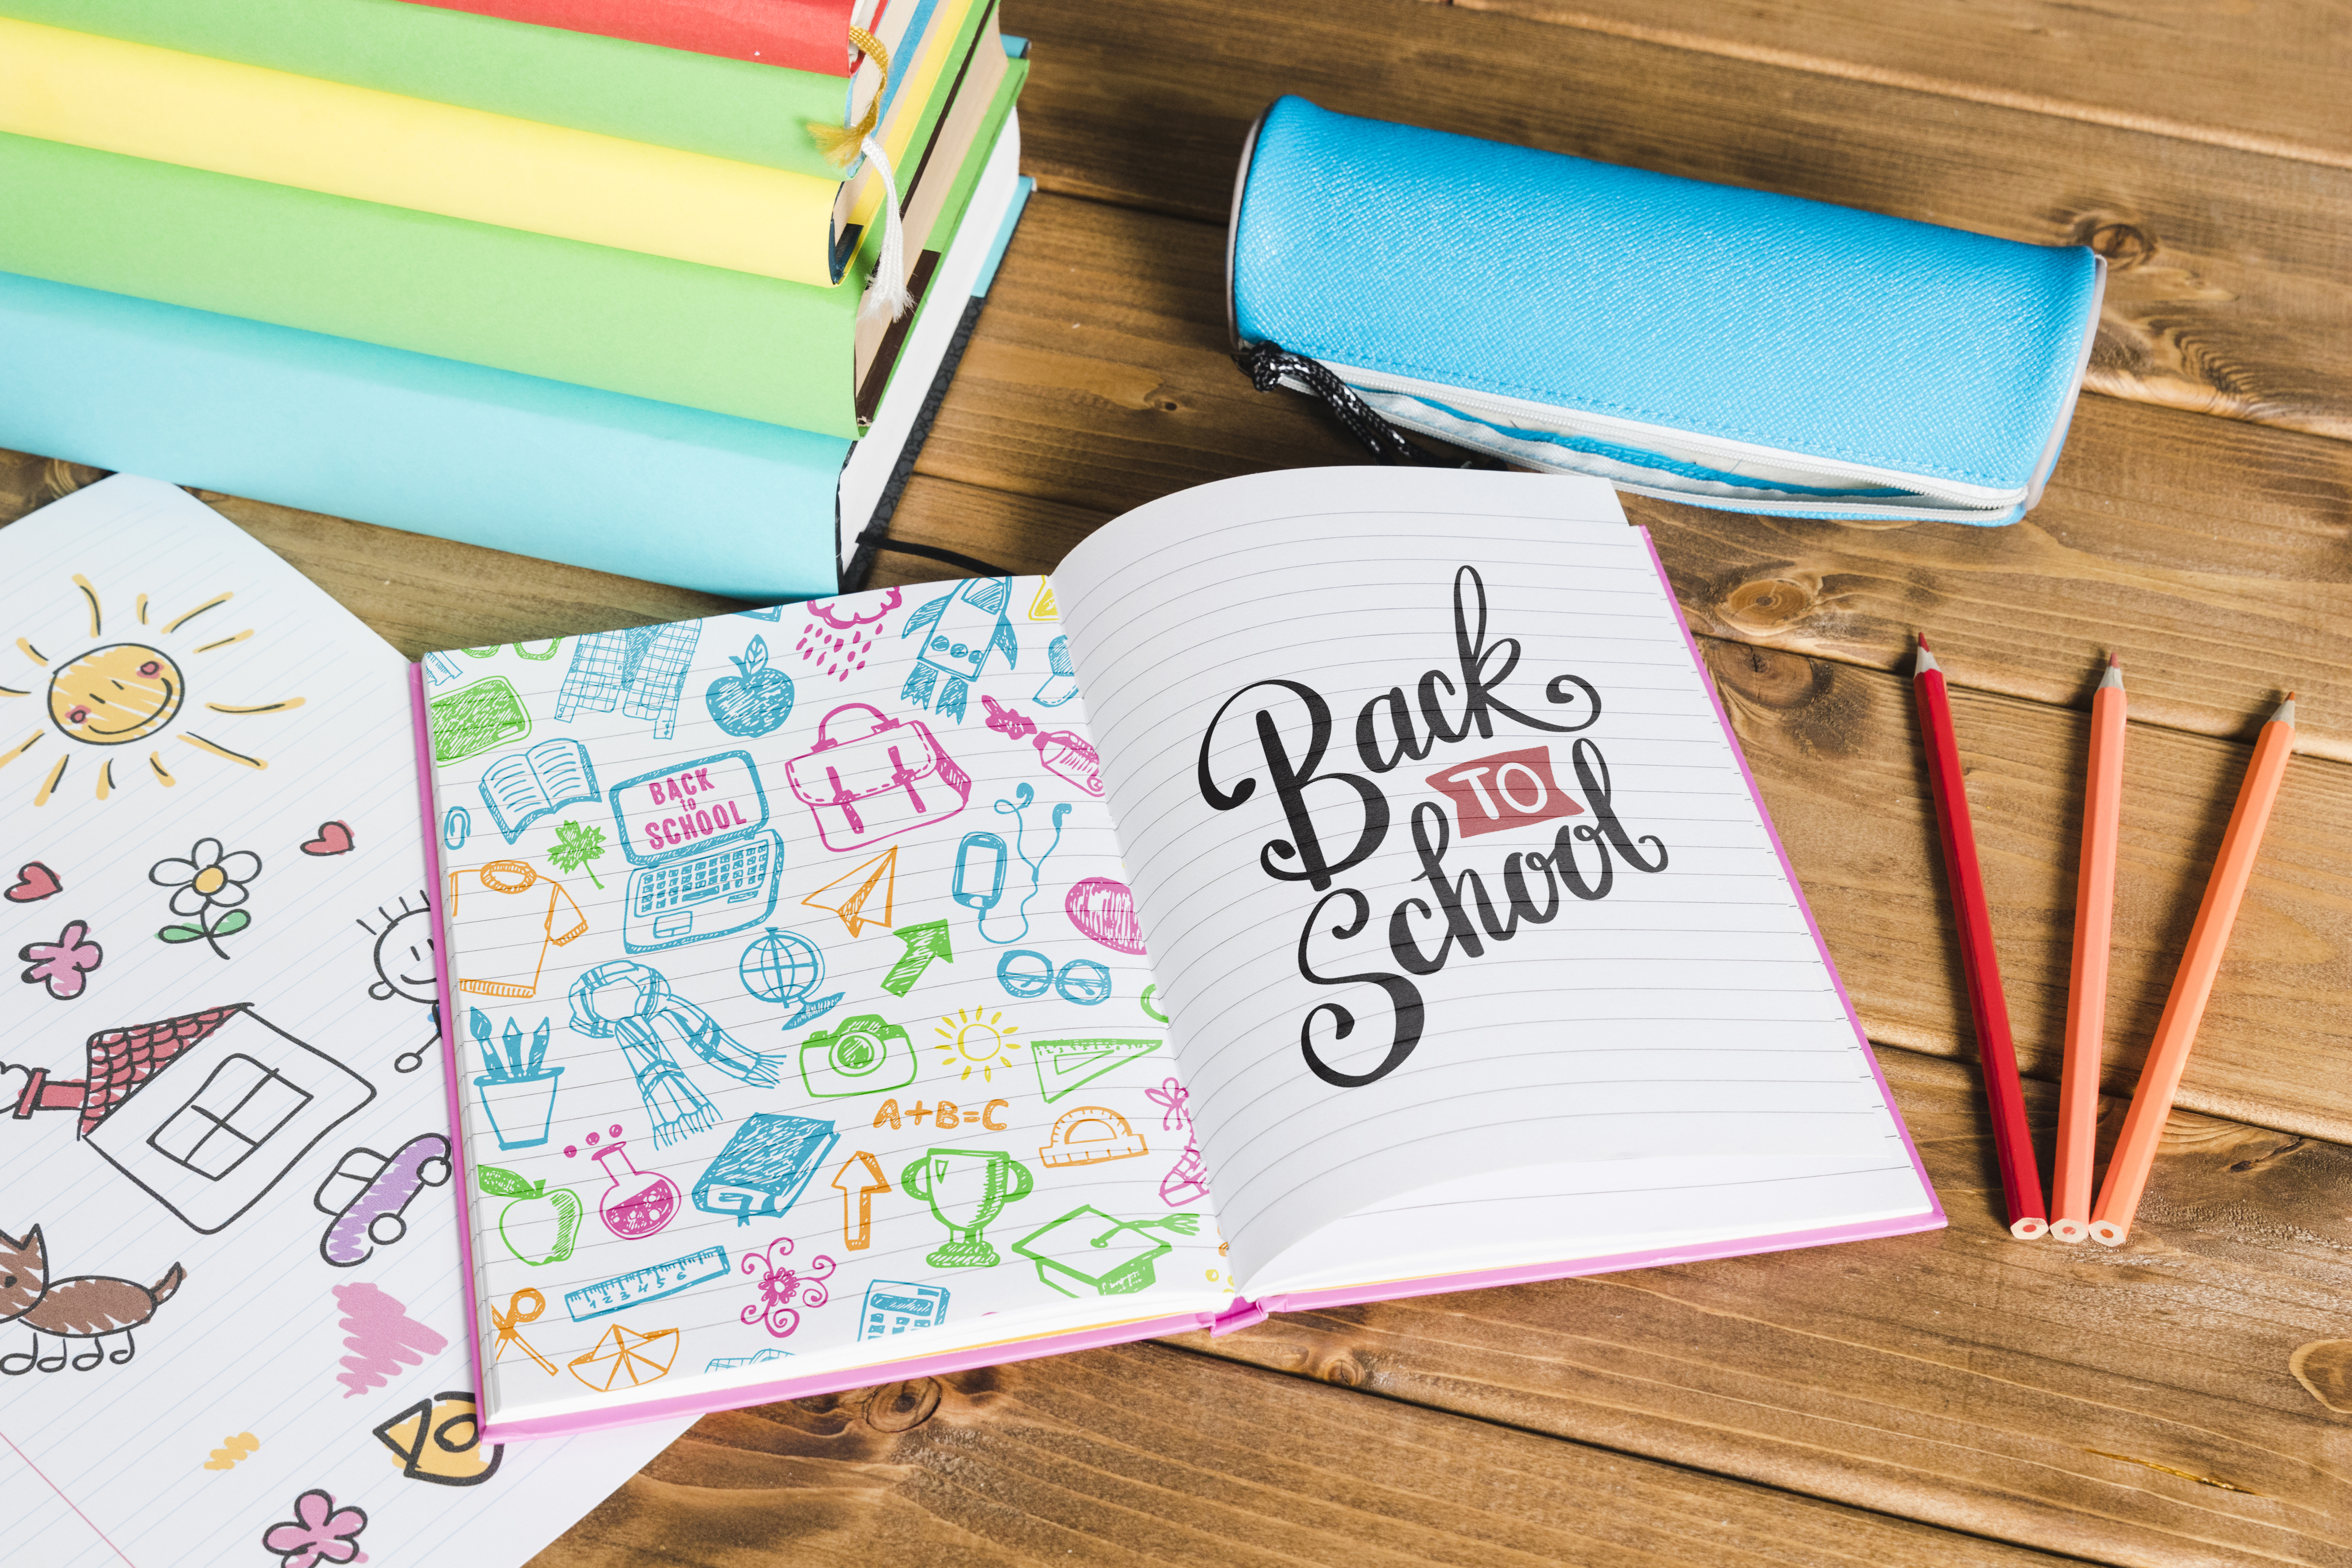 BACK
to
SCHOOL
A+B=C
1 2 3 4 5 6
Back
TO
School